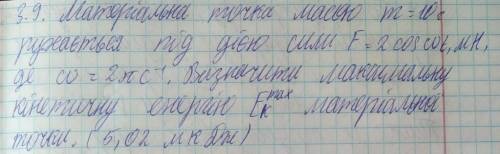 3.9. Матеріальна точка масою m = 10г
рухається під дією сили F = 2 cos ωt, мН,
де ω = 2π с⁻¹. Визначити максимальну
кінетичну енергію Eₖᵐᵃˣ матеріальної
точки. (5,02 мкДж)